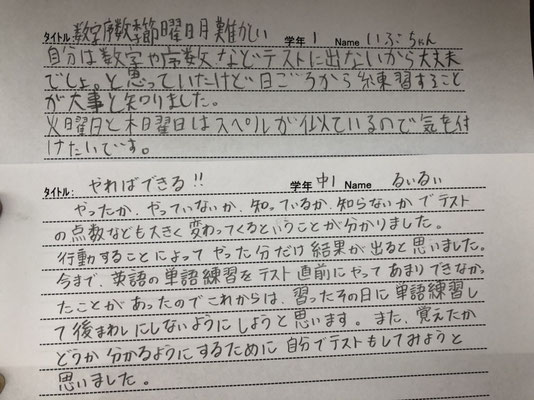 タイトル 数字序数季節曜日月難かしい 学年 1 Name いぶちゃん
自分は数字や序数などテストに出ないから大丈夫
でしょ。と思っていたけど日ごろから練習すること
が大事と知りました。
火曜日と木曜日はスペルが似ているので気を付
けたいです。
タイトル: やればできる!! 学年 中1 Name るぃるぃ
やったか、やっていないか、知っているか、知らないかでテスト
の点数なども大きく変わってくるということが分かりました。
行動することによってやった分だけ結果が出ると思いました。
今まで、英語の単語練習をテスト直前にやってあまりできなかっ
たことがあったのでこれからは、習ったその日に単語練習し
て後まわしにしないようにしようと思います。また、覚えたか
どうか分かるようにするために自分でテストもしてみようと
思いました。